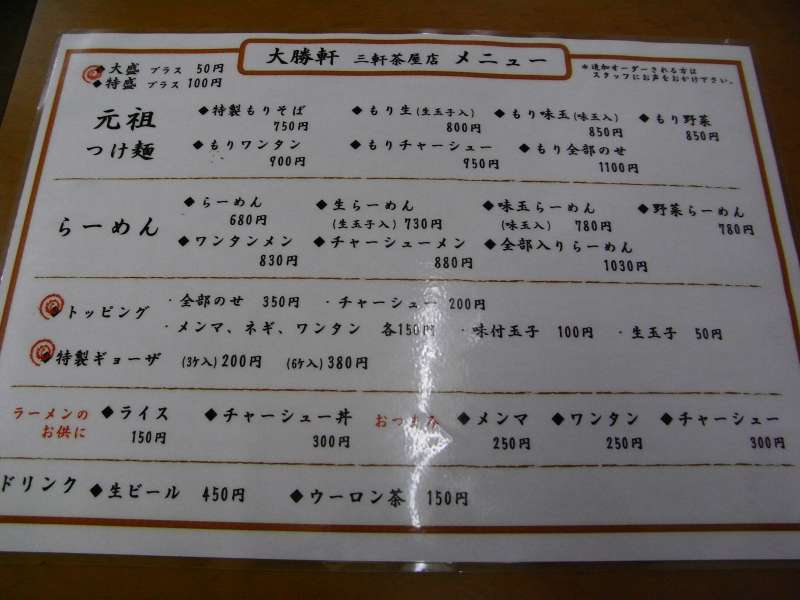 大勝軒 三軒茶屋店 メニュー
◆大盛 プラス 50円
◆特盛 プラス 100円
※追加オーダーされる方は
スタッフにお声をおかけ下さい。
元祖
つけ麺
◆特製もりそば
750円
◆もり生(生玉子入)
800円
◆もり味玉(味玉入)
850円
◆もり野菜
850円
◆もりワンタン
900円
◆もりチャーシュー
950円
◆もり全部のせ
1100円
らーめん
◆らーめん
680円
◆生らーめん
(生玉子入) 730円
◆味玉らーめん
(味玉入) 780円
◆野菜らーめん
780円
◆ワンタンメン
830円
◆チャーシューメン
880円
◆全部入りらーめん
1030円
◆トッピング
・全部のせ 350円 ・チャーシュー 200円
・メンマ、ネギ、ワンタン 各150円 ・味付玉子 100円 ・生玉子 50円
◆特製ギョーザ (3ケ入)200円 (6ケ入)380円
ラーメンの
お供に
◆ライス
150円
◆チャーシュー丼
300円
おつまみ
◆メンマ
250円
◆ワンタン
250円
◆チャーシュー
300円
ドリンク ◆生ビール 450円 ◆ウーロン茶 150円